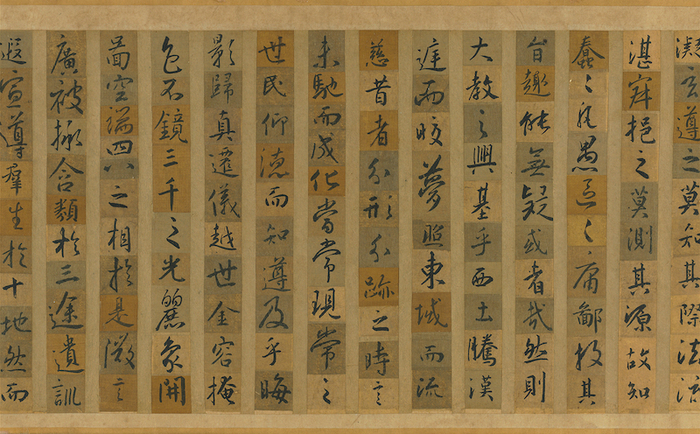 凝玄遵之莫知其際法流
湛寂挹之莫測其源故知
蠢々凡愚區々庸鄙投其
旨趣能無疑或者哉然則
大教之興基乎西土騰漢
庭而皎夢照東域而流
慈昔者分形分跡之時言
未馳而成化當常現常之
世民仰德而知遵及乎晦
影歸真遷儀越世金容掩
色不鏡三千之光麗象開
啚空端四八之相於是微言
廣被拯含類於三途遺訓
遐宣導羣生於十地然而